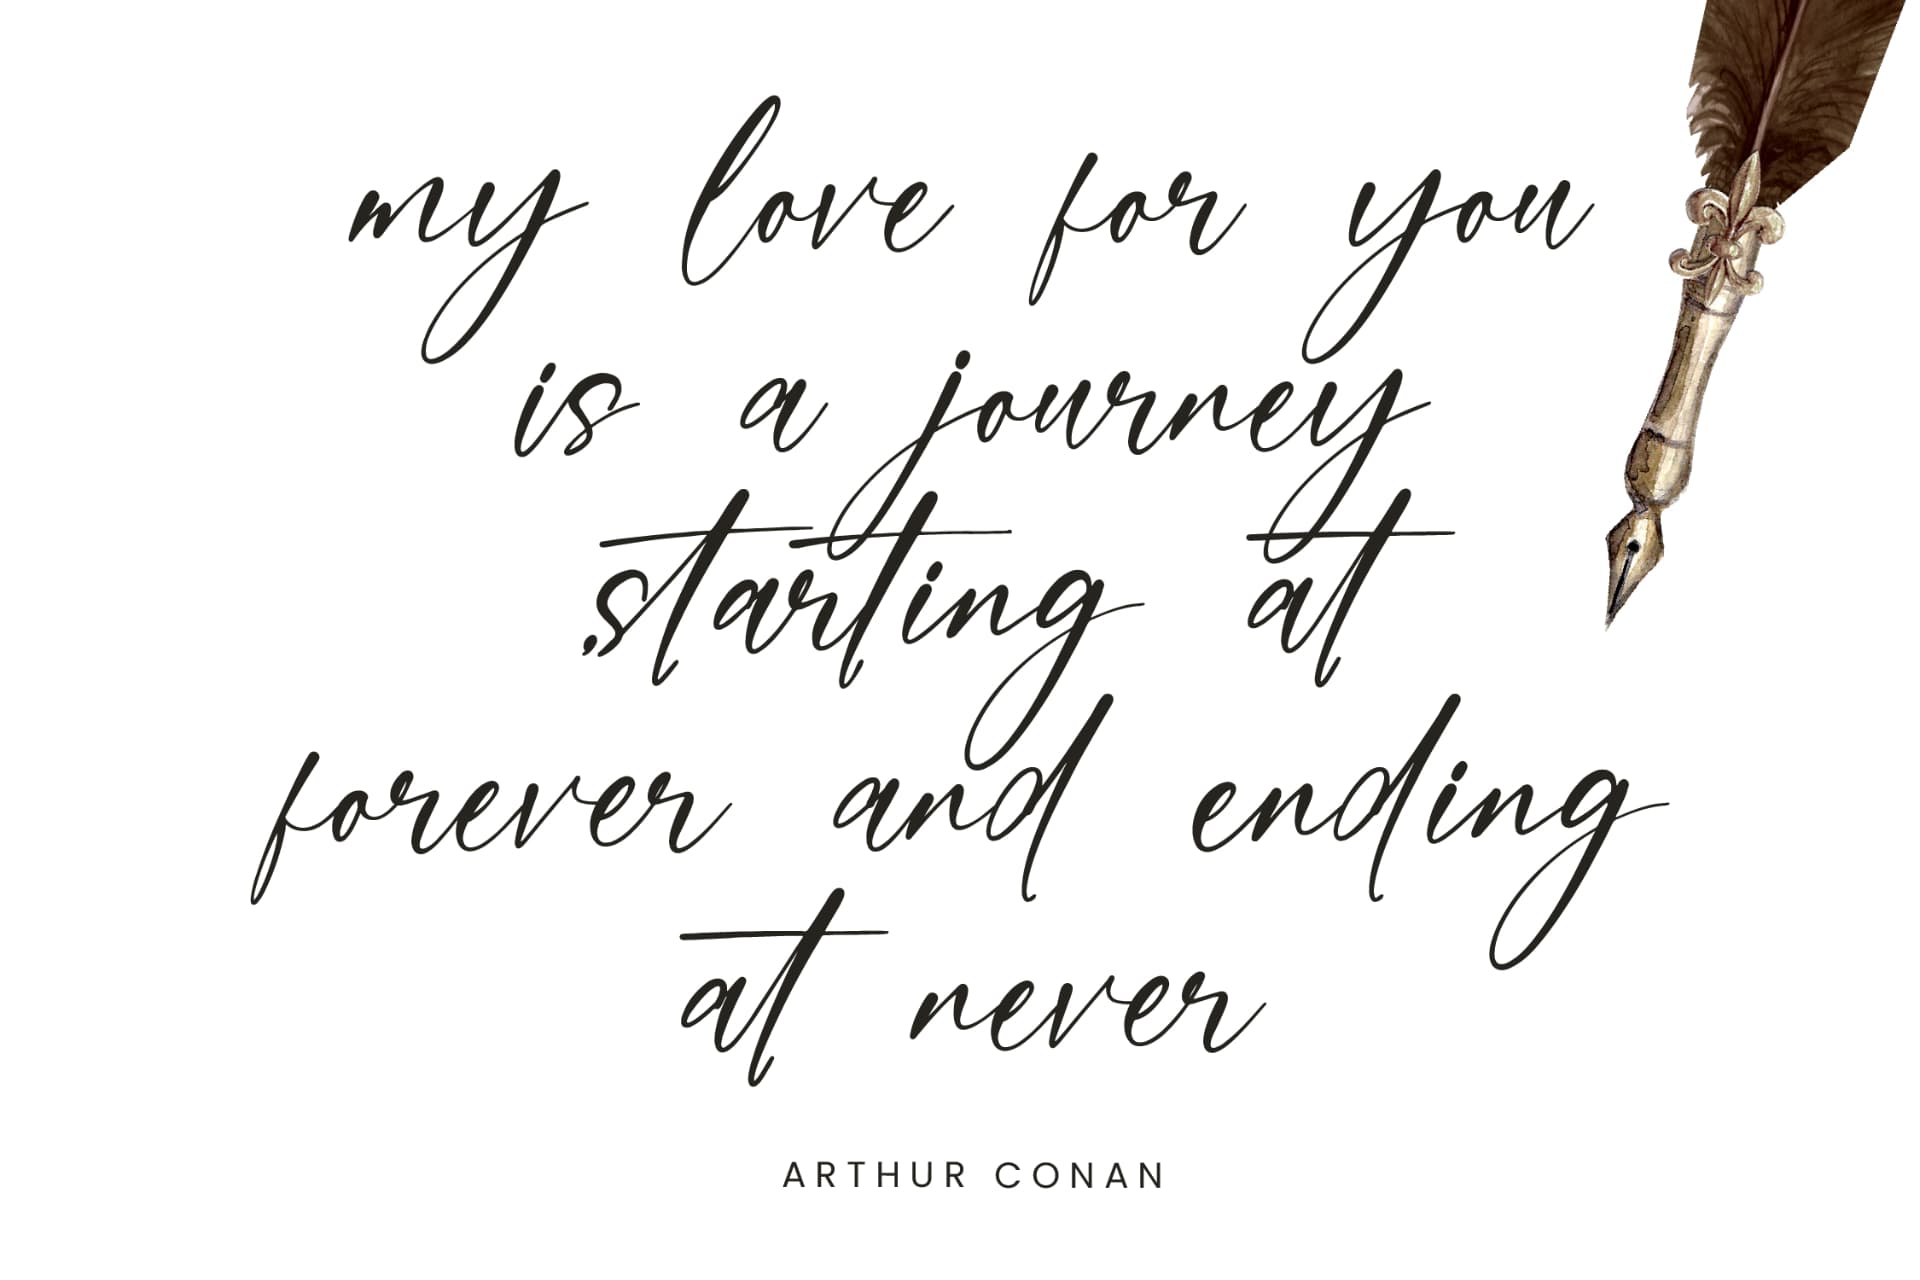 my love for you
is a journey
starting at
forever and ending
at never
ARTHUR CONAN